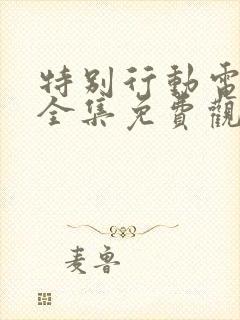 特別行動電
全集免費觀
麦鲁